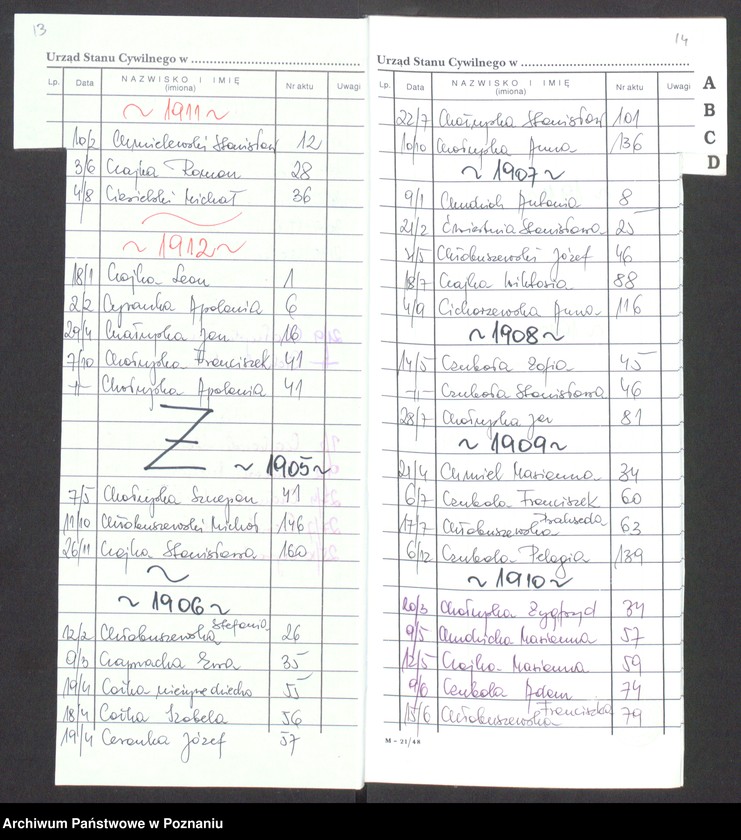 13
Urząd Stanu Cywilnego w
Lp. Data NAZWISKO I IMIĘ (imiona) Nr aktu Uwagi
~ 1911 ~
10/2 Chmielewski Stanisław 12
3/6 Czajka Roman 28
4/8 Ciesielski Michał 36
~ 1912 ~
18/1 Czajka Leon 1
2/2 Apolonia 6
29/4 Jan 16
7/10 Chołujska Franciszek 41
-"- Chołujska Apolonia 41
Z
~ 1905 ~
7/5 Chołujska Szczepan 41
11/10 Chłobuszewski Michał 146
26/11 Czajka Stanisława 160
~
~ 1906 ~
12/2 Chłobuszewska Stefania 26
9/3 Ewa 35
19/4 Ciołka nieżywe dziecko 55
18/4 Ciołka Izabela 56
19/4 Ceranka Józef 57
14
Urząd Stanu Cywilnego w
Lp. Data NAZWISKO I IMIĘ (imiona) Nr aktu Uwagi
A
B
C
D
22/7 Chołujska Stanisław 101
10/10 Chołujska Anna 136
~ 1907 ~
9/1 Antonia 8
21/2 Ćwiertnia Stanisława 25
Chłobuszewski Józef 46
18/7 Czajka Wiktoria 88
4/9 Cichoszewska Anna 116
~ 1908 ~
14/5 Czubała Zofia 45
-"- Czubała Stanisława 46
28/7 Chołujska Jan 81
~ 1909 ~
21/4 Chmiel Marianna 34
6/7 Czubała Franciszek 60
17/7 Chłobuszewska Prakseda 63
6/12 Czubała Pelagia 139
~ 1910 ~
20/3 Chołujska Zygfryd 34
9/5 Marianna 57
12/5 Czajka Marianna 59
9/6 Czubała Adam 74
15/6 Chłobuszewska Franciszka 79
M – 21/48
Archiwum Państwowe w Poznaniu